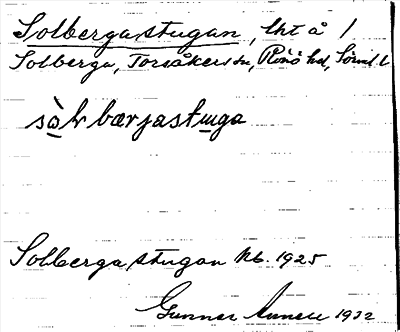 Solbergastugan, lht å /
Solberga, Torsåkers sn, Rönö hd, Söml. l.
sò̱lbærjastu̱ga
Solbergastugan Kb. 1925
Gunnar 1932